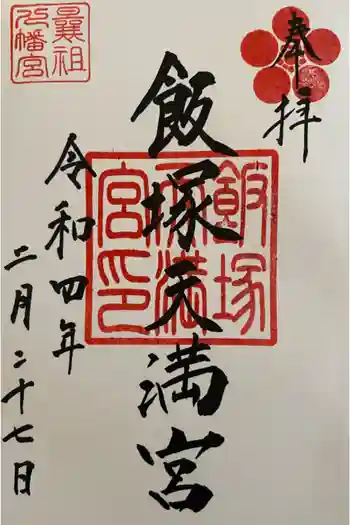 奉拝
飯塚天満宮
令和四年
二月二十七日
飯塚
天満
宮印
曩祖
八幡宮